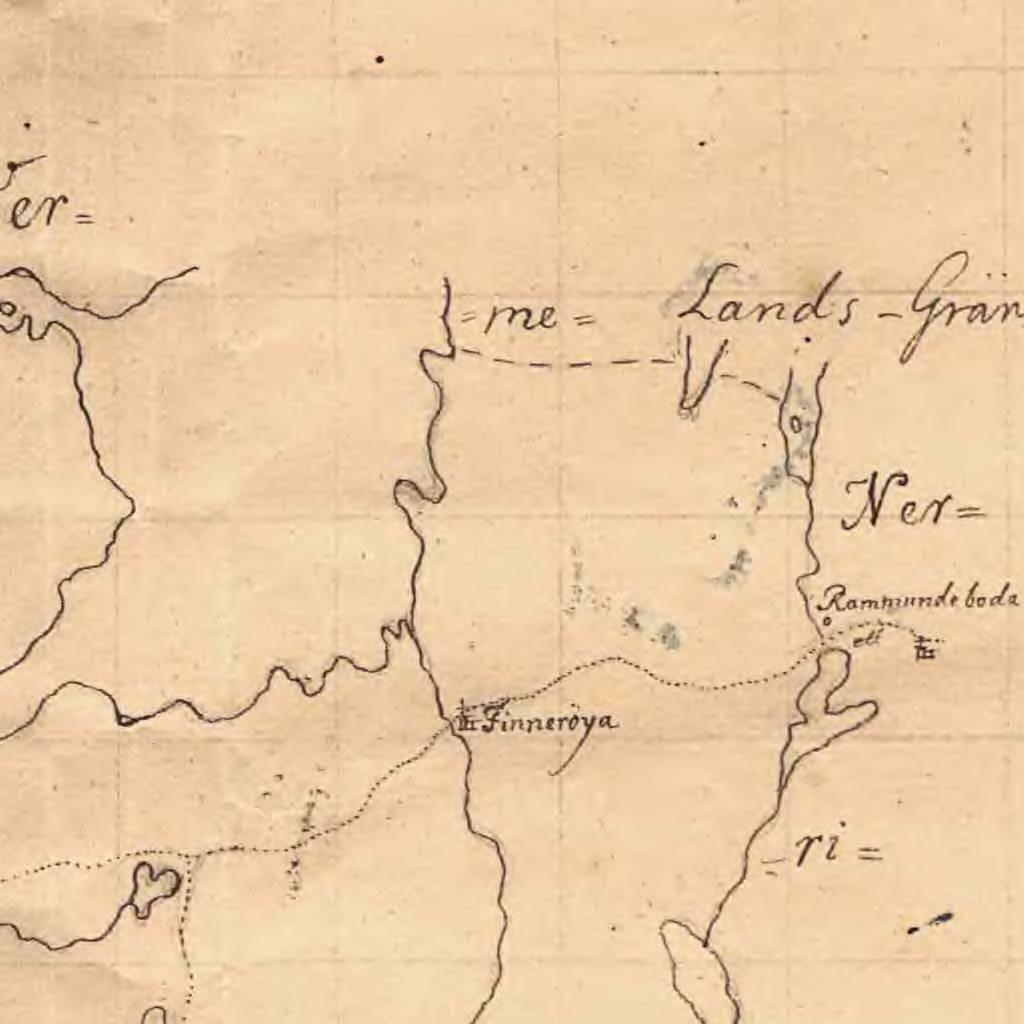 er=
=me= Lands-Grän
Ner=
Rammundeboda
Finneröya
-ri=